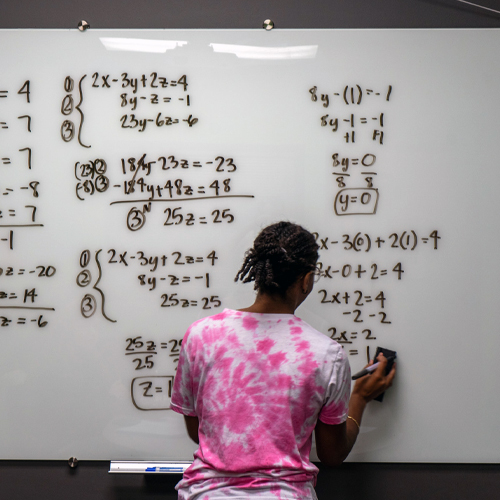 = 4
= 7
= 7
= -8
z = 7
-1
z = -20
z = 14
z = -6
① 2x-3y+2z=4
② 8y-z=-1
③ 23y-6z=-6
(23)② 184y-23z=-23
(-8)③ -184y+48z=48
③ 25z=25
① 2x-3y+2z=4
② 8y-z=-1
③ 25z=25
25z = 25
25
z=1
8y-(1)=-1
8y-1=-1
+1 +1
8y=0
8 8
y=0
2x-3(0)+2(1)=4
2x-0+2=4
2x+2=4
-2 -2
2x=2
= 1